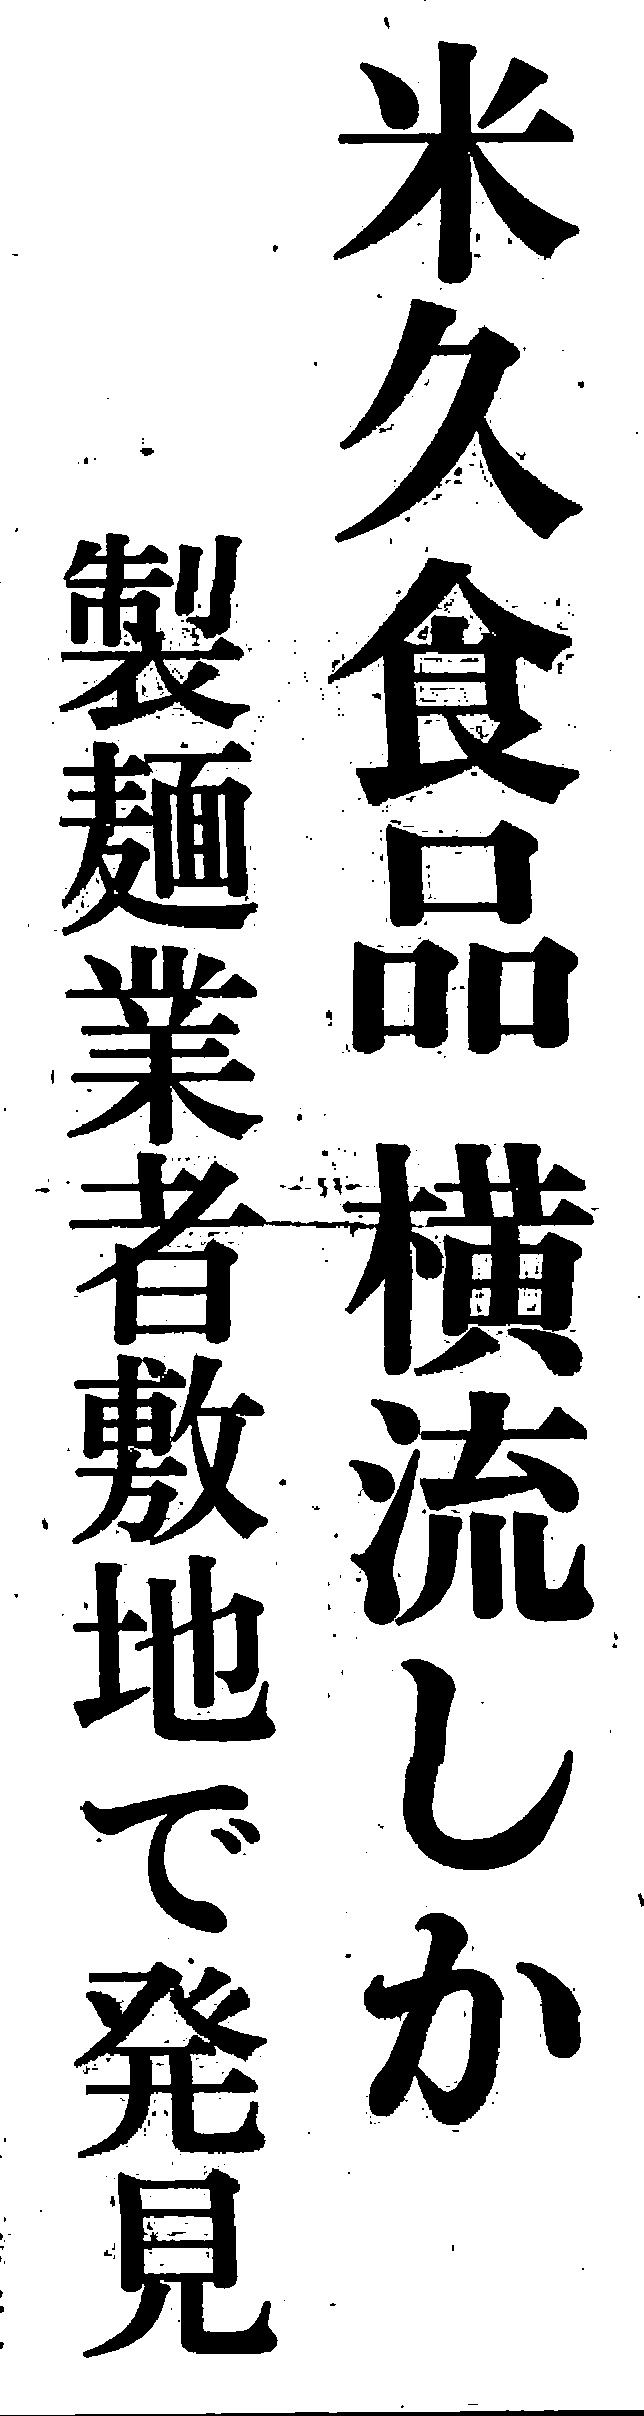 米久食品 横流しか
製麺業者敷地で発見